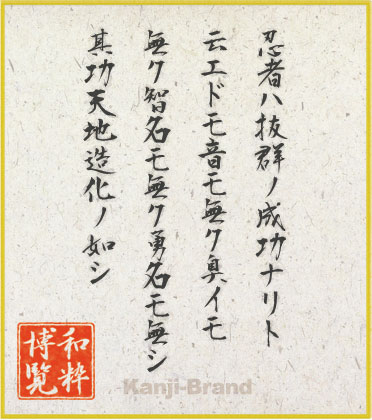 忍者ハ抜群ノ成功ナリト
云エドモ音モ無ク臭イモ
無ク智名モ無ク勇名モ無シ
其功天地造化ノ如シ
和粋
博覧
Kanji-Brand